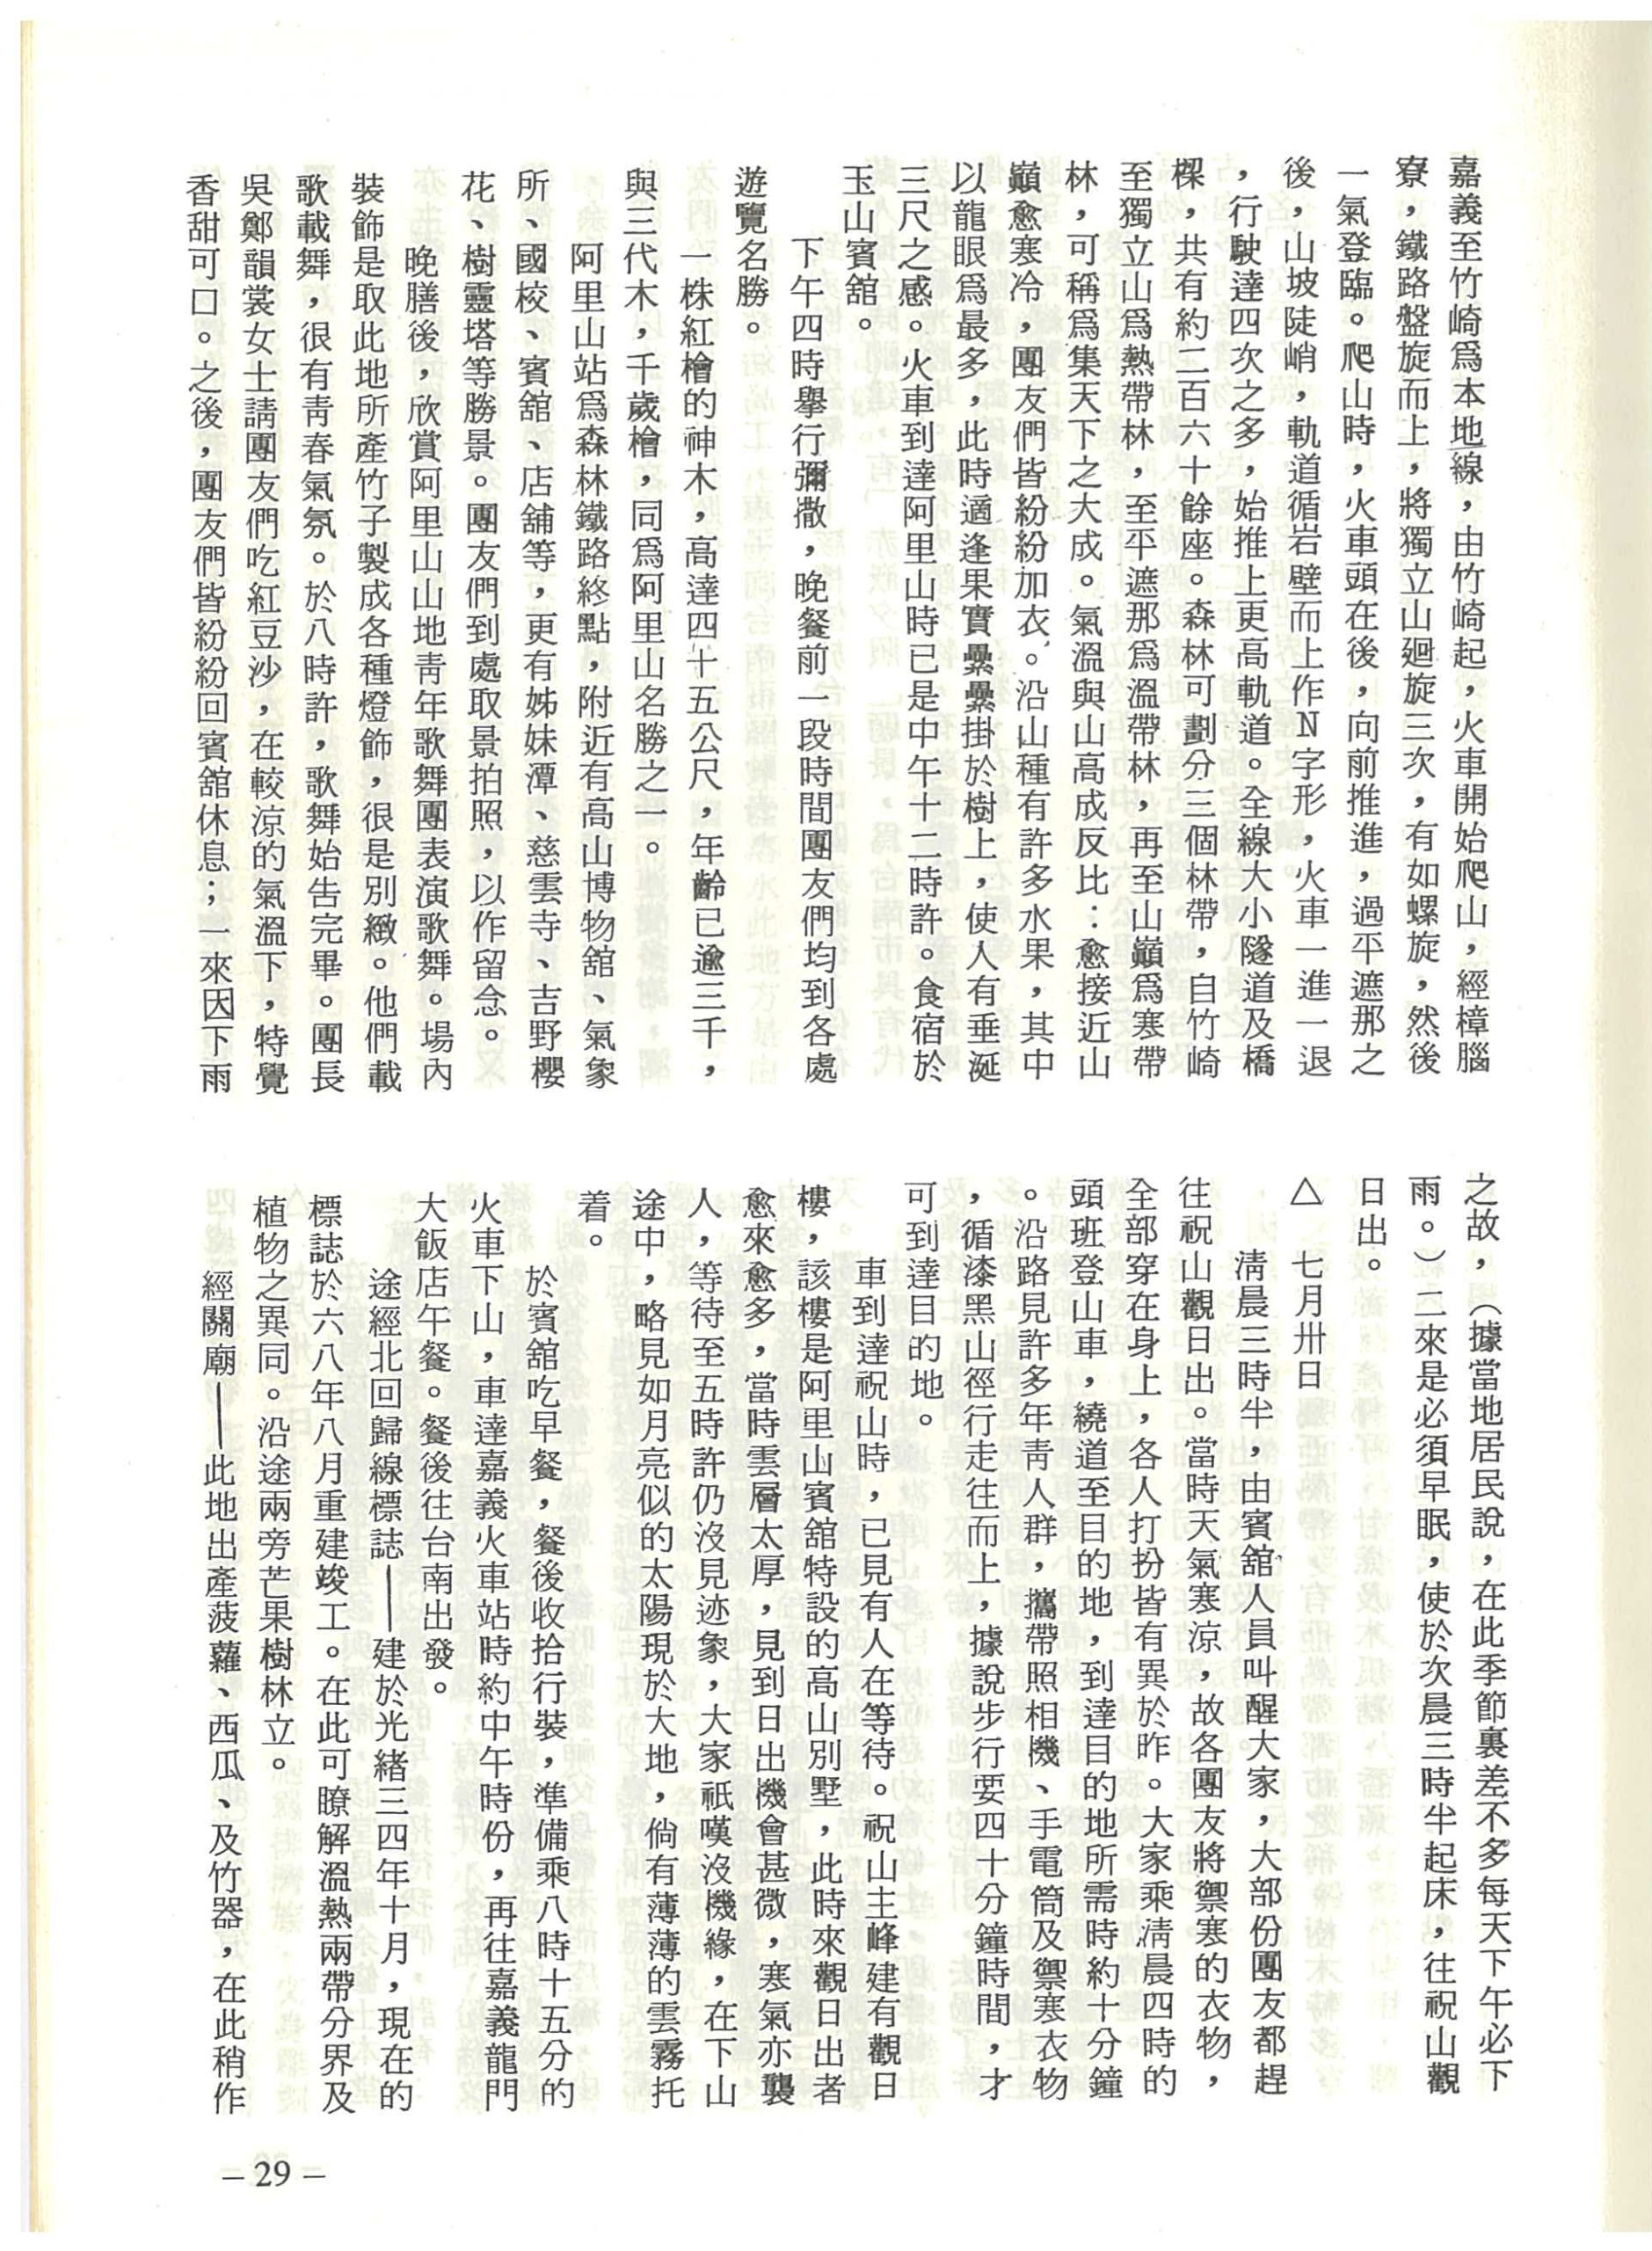 嘉義至竹崎爲本地線，由竹崎起，火車開始爬山，經樟腦
寮，鐵路盤旋而上，將獨立山廻旋三次，有如螺旋，然後
一氣登臨。爬山時，火車頭在後，向前推進，過平遮那之
後，山坡陡峭，軌道循岩壁而上作N字形，火車一進一退
，行駛達四次之多，始推上更高軌道。全線大小隧道及橋
樑，共有約二百六十餘座。森林可劃分三個林帶，自竹崎
至獨立山爲熱帶林，至平遮那爲溫帶林，再至山巓爲寒帶
林，可稱爲集天下之大成。氣溫與山高成反比：愈接近山
巓愈寒冷，團友們皆紛紛加衣。沿山種有許多水果，其中
以龍眼爲最多，此時適逢果實纍纍掛於樹上，使人有垂涎
三尺之感。火車到達阿里山時已是中午十二時許。食宿於
玉山賓舘。
下午四時舉行彌撒，晚餐前一段時間團友們均到各處
遊覽名勝。
一株紅檜的神木，高達四十五公尺，年齡已逾三千，
與三代木，千歲檜，同爲阿里山名勝之一。
阿里山站爲森林鐵路終點，附近有高山博物舘、氣象
所、國校、賓舘、店舖等，更有姊妹潭、慈雲寺、吉野櫻
花、樹靈塔等勝景。團友們到處取景拍照，以作留念。
晚膳後，欣賞阿里山山地靑年歌舞團表演歌舞。場內
裝飾是取此地所產竹子製成各種燈飾，很是別緻。他們載
歌載舞，很有靑春氣氛。於八時許，歌舞始告完畢。團長
吳鄭韻裳女士請團友們吃紅豆沙，在較涼的氣溫下，特覺
香甜可口。之後，團友們皆紛紛回賓舘休息；一來因下雨
之故，（據當地居民說，在此季節裏差不多每天下午必下
雨。）二來是必須早眠，使於次晨三時半起床，往祝山觀
日出。
△　七月卅日
淸晨三時半，由賓舘人員叫醒大家，大部份團友都趕
往祝山觀日出。當時天氣寒涼，故各團友將禦寒的衣物，
全部穿在身上，各人打扮皆有異於昨。大家乘淸晨四時的
頭班登山車，繞道至目的地，到達目的地所需時約十分鐘
。沿路見許多年靑人群，攜帶照相機、手電筒及禦寒衣物
，循漆黑山徑行走往而上，據說步行要四十分鐘時間，才
可到達目的地。
車到達祝山時，已見有人在等待。祝山主峰建有觀日
樓，該樓是阿里山賓舘特設的高山別墅，此時來觀日出者
愈來愈多，當時雲層太厚，見到日出機會甚微，寒氣亦襲
人，等待至五時許仍沒見迹象，大家祇嘆沒機緣，在下山
途中，略見如月亮似的太陽現於大地，倘有薄薄的雲霧托
着。
於賓舘吃早餐，餐後收拾行裝，準備乘八時十五分的
火車下山，車達嘉義火車站時約中午時份，再往嘉義龍門
大飯店午餐。餐後往台南出發。
途經北回歸線標誌——建於光緒三四年十月，現在的
標誌於六八年八月重建竣工。在此可瞭解溫熱兩帶分界及
植物之異同。沿途兩旁芒果樹林立。
經關廟——此地出產菠蘿、西瓜、及竹器，在此稍作
－29－